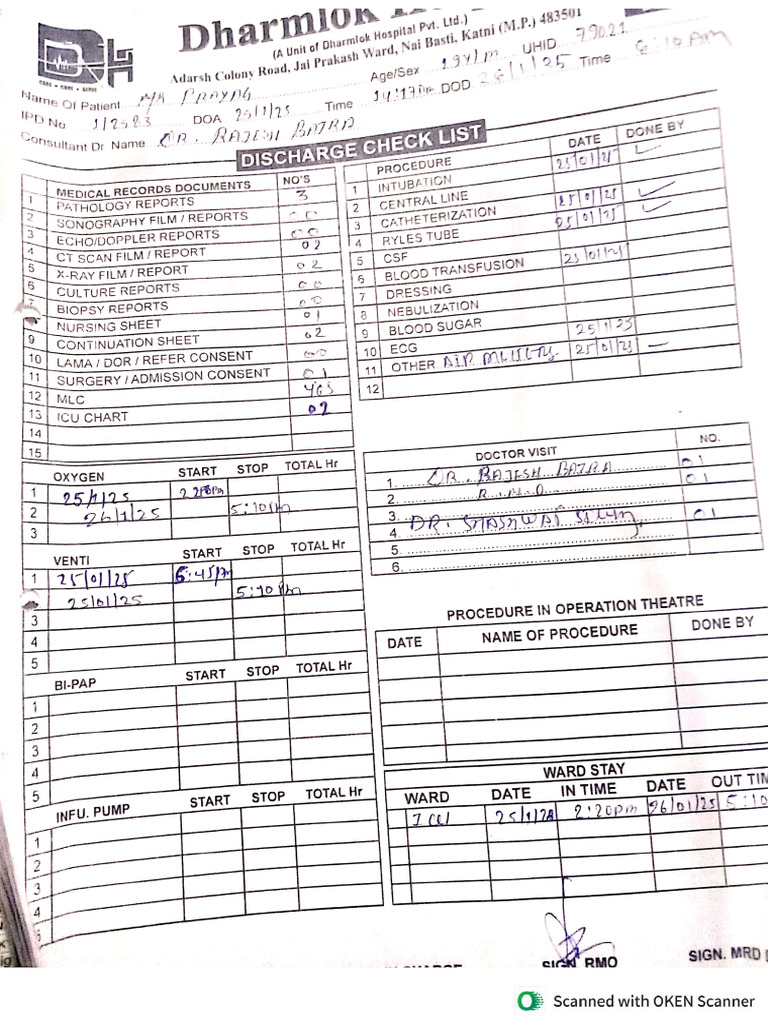 Dharmlok
(A Unit of Dharmlok Hospital Pvt. Ltd.)
Adarsh Colony Road, Jai Prakash Ward, Nai Basti, Katni (M.P.) 483501
DH
Name Of Patient Mr PRAYAG Age/Sex 19Y/m UHID 79021
IPD No 1/2523 DOA 25/1/25 Time 14:17pm DOD 26/1/25 Time 6:10AM
Consultant Dr Name DR. RAJESH BATRA
DISCHARGE CHECK LIST
MEDICAL RECORDS DOCUMENTS NO'S
1 PATHOLOGY REPORTS 3
2 SONOGRAPHY FILM / REPORTS 00
3 ECHO/DOPPLER REPORTS 00
4 CT SCAN FILM / REPORT 02
5 X-RAY FILM / REPORT 02
6 CULTURE REPORTS 00
7 BIOPSY REPORTS 00
NURSING SHEET 01
9 CONTINUATION SHEET 02
10 LAMA / DOR / REFER CONSENT 00
11 SURGERY / ADMISSION CONSENT 01
12 MLC yes
13 ICU CHART 02
14
15
PROCEDURE DATE DONE BY
1 INTUBATION 25/01/25
2 CENTRAL LINE
3 CATHETERIZATION 25/01/25
4 RYLES TUBE 25/01/25
5 CSF
6 BLOOD TRANSFUSION 25/01/25
7 DRESSING
8 NEBULIZATION
9 BLOOD SUGAR
10 ECG 25/1/25
11 OTHER AIR 25/01/25
12
OXYGEN START STOP TOTAL Hr
1 25/1/25
2 26/1/25 5:10am
3
VENTI START STOP TOTAL Hr
1 25/01/25 6:45pm
25/01/25 5:10am
3
4
5
BI-PAP START STOP TOTAL Hr
1
2
3
4
5
INFU. PUMP START STOP TOTAL Hr
1
2
3
4
DOCTOR VISIT NO.
1. DR. RAJESH BATRA 01
2. R.M.O 01
3.
4. DR. 01
5.
6.
PROCEDURE IN OPERATION THEATRE
DATE NAME OF PROCEDURE DONE BY
WARD STAY
WARD DATE IN TIME DATE OUT TIM
ICU 25/1/25 2:20pm 26/01/25 5:10
SIGN. RMO
SIGN. MRD
Scanned with OKEN Scanner